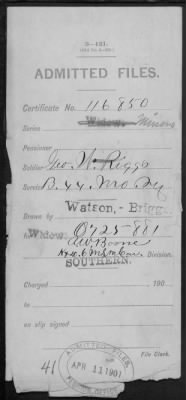 3-421.
ADMITTED FILES.
Certificate No. 116.850
Series Widow. Minors
Pensioner
Soldier Geo. W. Riggs
Service B. 44. Mo Inf
Watson, - Brigg
Drawn by
Widow. 0725-881
Boone
SOUTHERN. Division.
Charged , 190
to
on slip signed
File Clerk.
41
ADMITTED FILES.
APR 11 1901
PENSION OFFICE